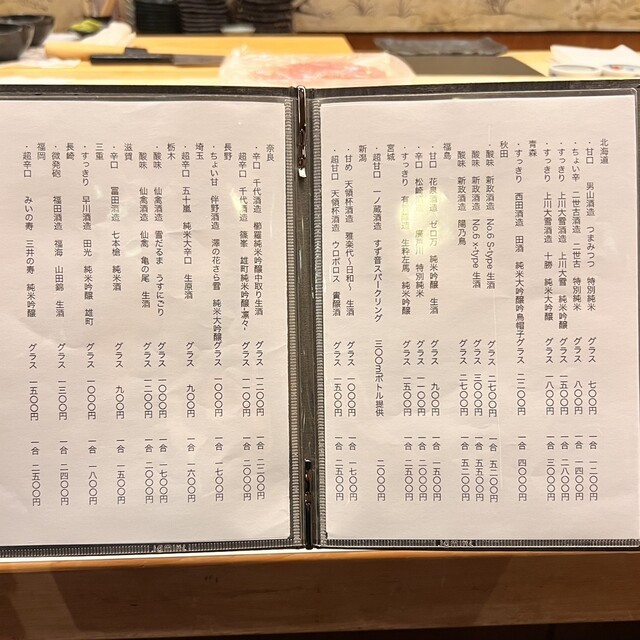 北海道
・甘口 男山酒造 つまみつつ 特別純米 グラス 七〇〇円 一合 一二〇〇円
・ちょい辛 二世古酒造 二世古 特別純米 グラス 八〇〇円 一合 一四〇〇円
・すっきり 上川大雪酒造 上川大雪 純米吟醸 グラス 一五〇〇円 一合 二八〇〇円
・すっきり 上川大雪酒造 十勝 純米吟醸 グラス 一八〇〇円 一合 三〇〇〇円
青森
・すっきり 西田酒造 田酒 純米大吟醸烏帽子 グラス 二二〇〇円 一合 四〇〇〇円
秋田
・酸味 新政酒造 No.6 S-type 生酒 グラス 二七〇〇円 一合 五二〇〇円
・酸味 新政酒造 No.6 X-type 生酒 グラス 三〇〇〇円 一合 五五〇〇円
・酸味 新政酒造 陽乃鳥 グラス 二七〇〇円 一合 五二〇〇円
福島
・甘口 花泉酒造 ゼロ万 純米吟醸 生酒 グラス 九〇〇円 一合 一五〇〇円
・辛口 松崎 特別純米 グラス 一合
・すっきり 有 酒造 生粋左馬 純米吟醸 グラス 一合
宮城
・超甘口 一ノ蔵酒造 すず音スパークリング 三〇〇㎖ボトル提供 二〇〇〇円
新潟
・甘め 天領杯酒造 雅楽代〜日和〜 生酒 グラス 一〇〇〇円 一合 一七〇〇円
・超甘口 天領杯酒造 ウロボロス 貴醸酒 グラス 一五〇〇円 一合 二五〇〇円
奈良
・辛口 千代酒造 櫛羅純米吟醸中取り生酒 グラス 一二〇〇円 一合 二二〇〇円
・超辛口 千代酒造 篠峯 雄町純米吟醸〝凛々〟 グラス 一一〇〇円 一合 二〇〇〇円
長野
・ちょい甘 伴野酒造 澤の花さら雪 純米大吟醸 グラス 一〇〇〇円 一合 一七〇〇円
埼玉
・超辛口 五十嵐 純米大辛口 生原酒 グラス 九〇〇円 一合 一六〇〇円
栃木
・酸味 仙禽酒造 雪だるま うすにごり グラス 一〇〇〇円 一合 一七〇〇円
・酸味 仙禽酒造 仙禽 亀の尾 生酒 グラス 一二〇〇円 一合 二〇〇〇円
滋賀
・辛口 冨田酒造 七本槍 純米酒 グラス 九〇〇円 一合 一五〇〇円
三重
・すっきり 早川酒造 田光 純米吟醸 雄町 グラス 一〇〇〇円 一合 一八〇〇円
長崎
・微発砲 福田酒造 福海 山田錦 生酒 グラス 一三〇〇円 一合 二四〇〇円
福岡
・超辛口 みいの寿 三井の寿 純米吟醸 グラス 一五〇〇円 一合 二五〇〇円